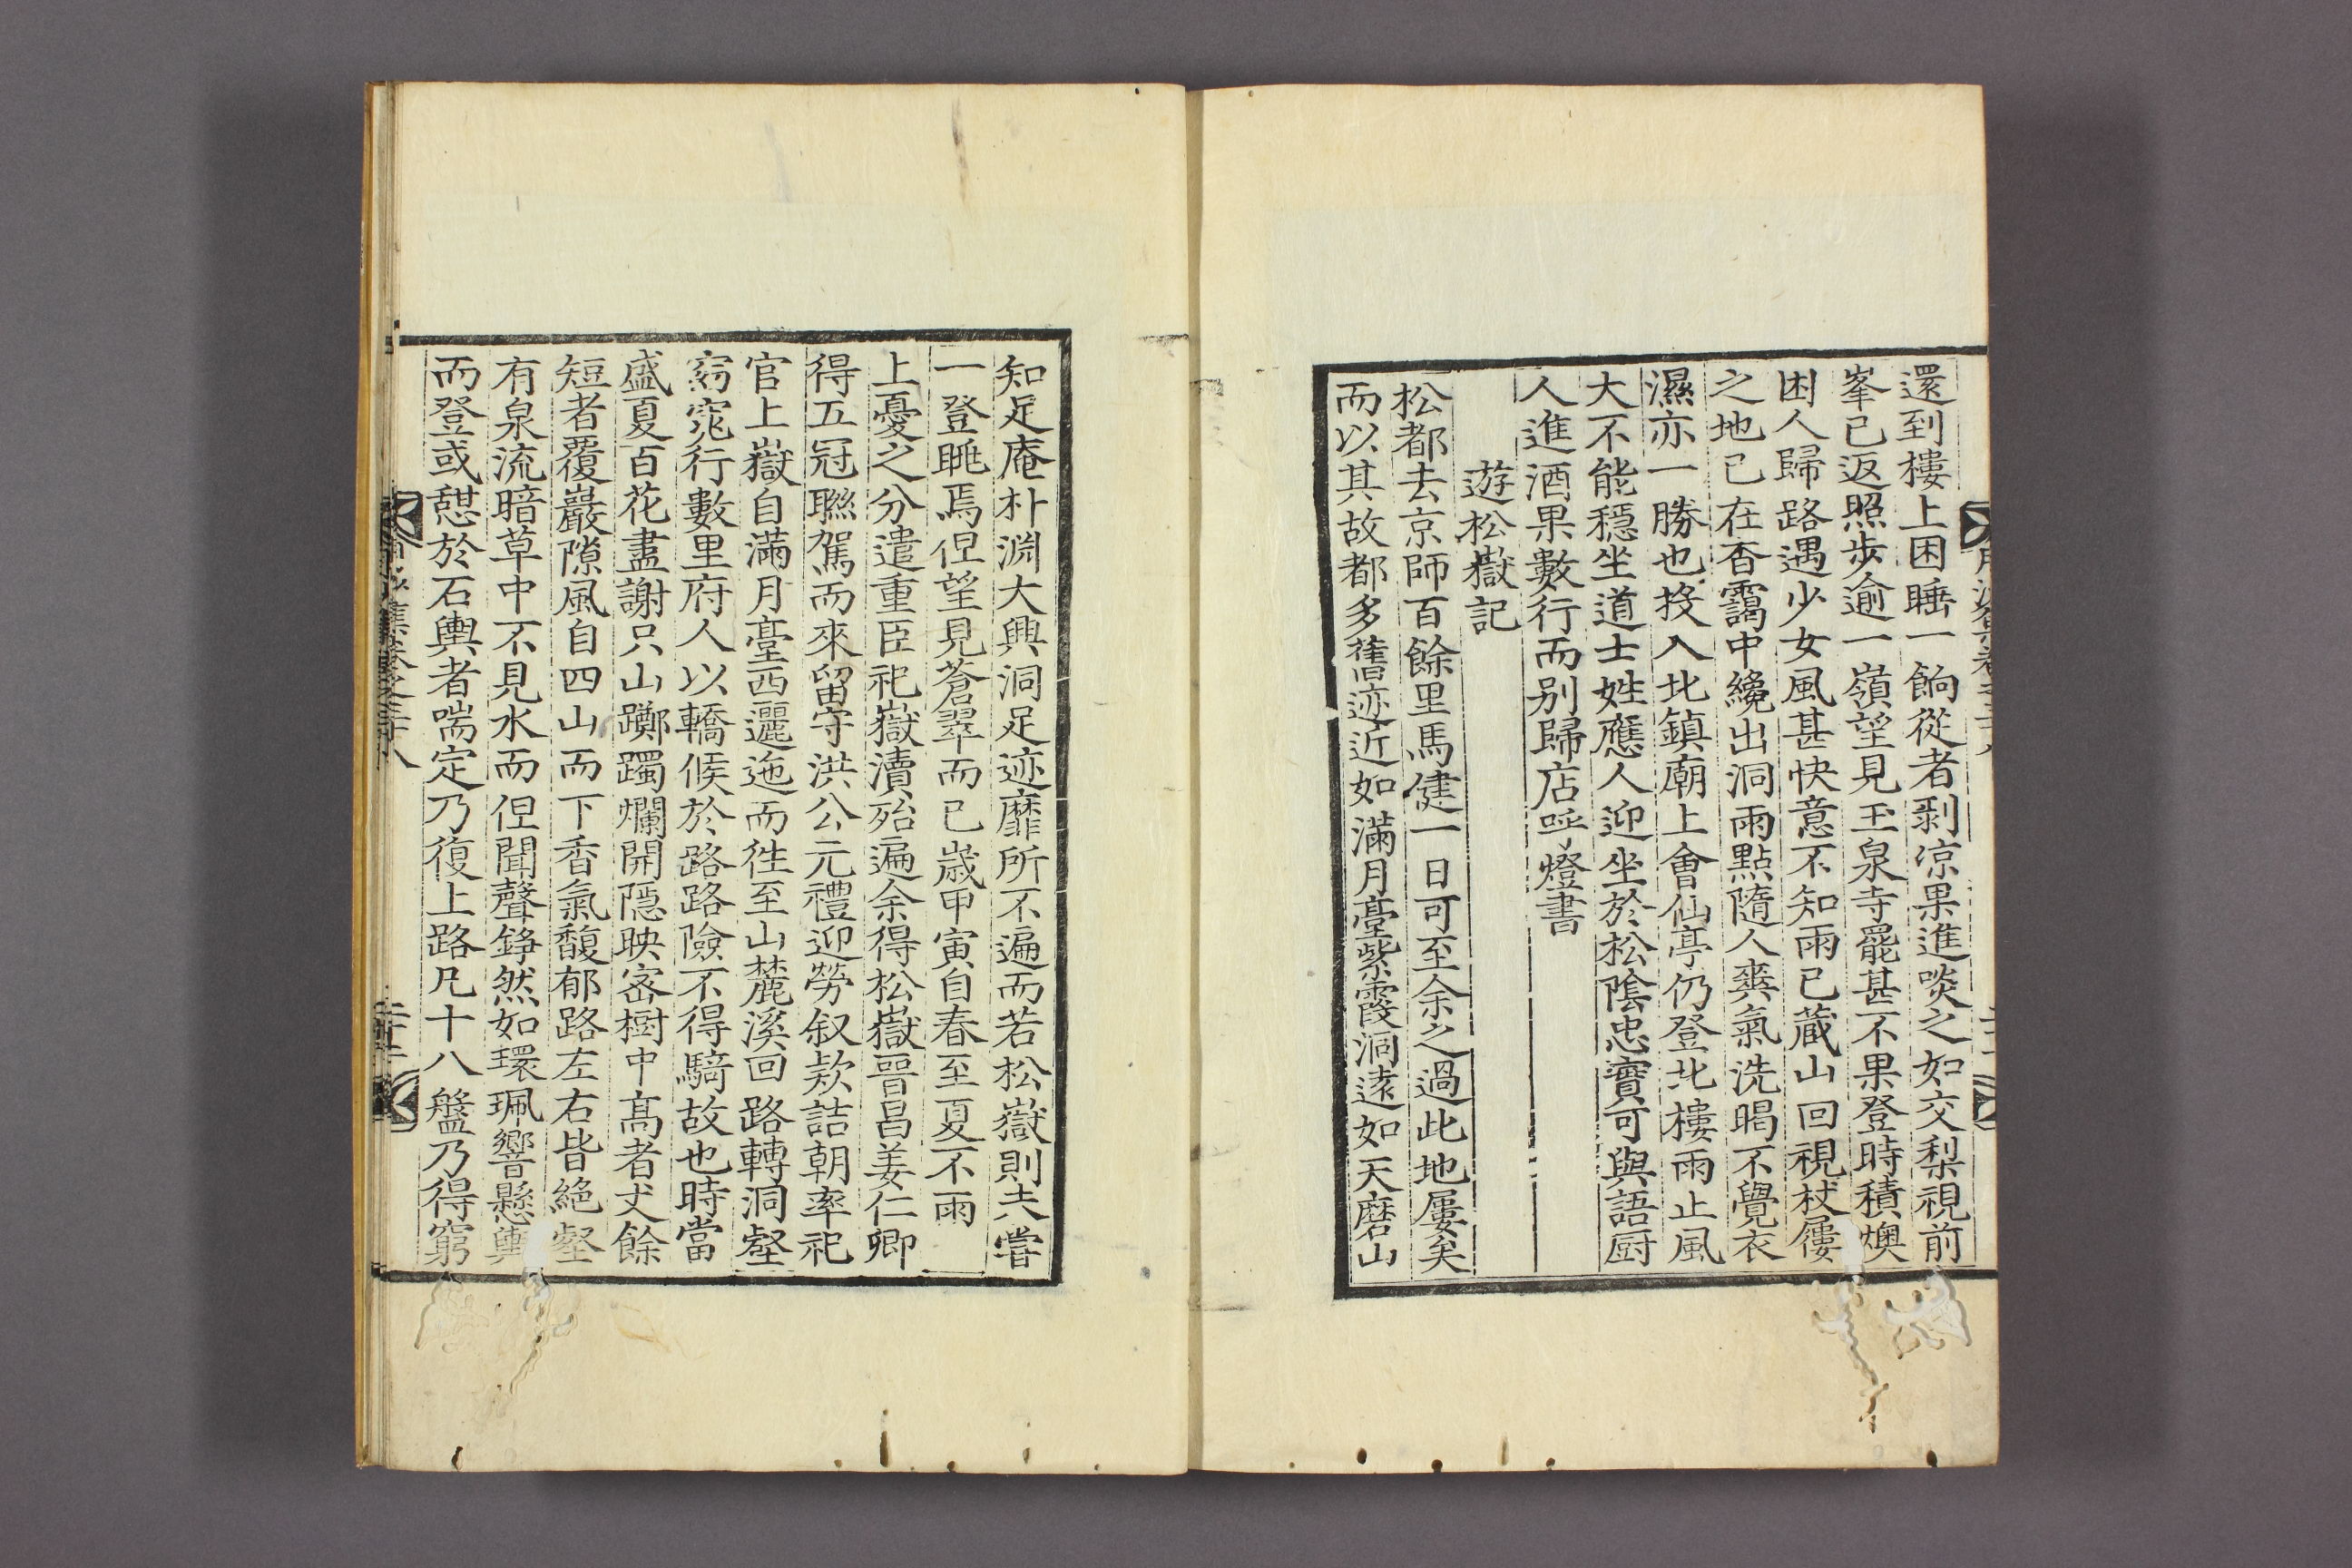 還到樓上困睡一餉從者剥凉果進啖之如交梨視前
峯已返照步逾一嶺望見玉泉寺罷甚不果登時積燠
困人歸路遇少女風甚快意不知雨已蔵山回視杖屨
之地已在杳靄中纔出洞雨點隨人爽氣洗暍不覺衣
濕亦一勝也投入北鎮廟上會仙亭仍登北樓雨止風
大不能穩坐道士姓應人迎坐於松陰忠實可與語厨
人進酒果數行而别歸店呼燈書
遊松嶽記
松都去京師百餘里馬健一日可至余之過此地屢矣
而以其故都多舊迹近如滿月臺紫霞洞遠如天磨山
知足庵朴淵大興洞足迹靡所不遍而若松嶽則未嘗
一登眺焉但望見蒼翠而已歲甲寅自春至夏不雨
上憂之分遣重臣祀嶽瀆殆遍余得松嶽晉昌姜仁卿
得五冠聯駕而來留守洪公元禮迎勞叙欵詰朝率祀
官上嶽自滿月臺西邐迤而徃至山麓溪回路轉洞壑
窈窕行數里府人以轎候於路路險不得騎故也時當
盛夏百花盡謝只山躑躅爛開隱映密樹中高者丈餘
短者覆巖隙風自四山而下香氣馥郁路左右皆絶壑
有泉流暗草中不見水而但聞聲錚然如環珮響懸輿
而登或憇於石輿者喘定乃復上路凡十八盤乃得窮